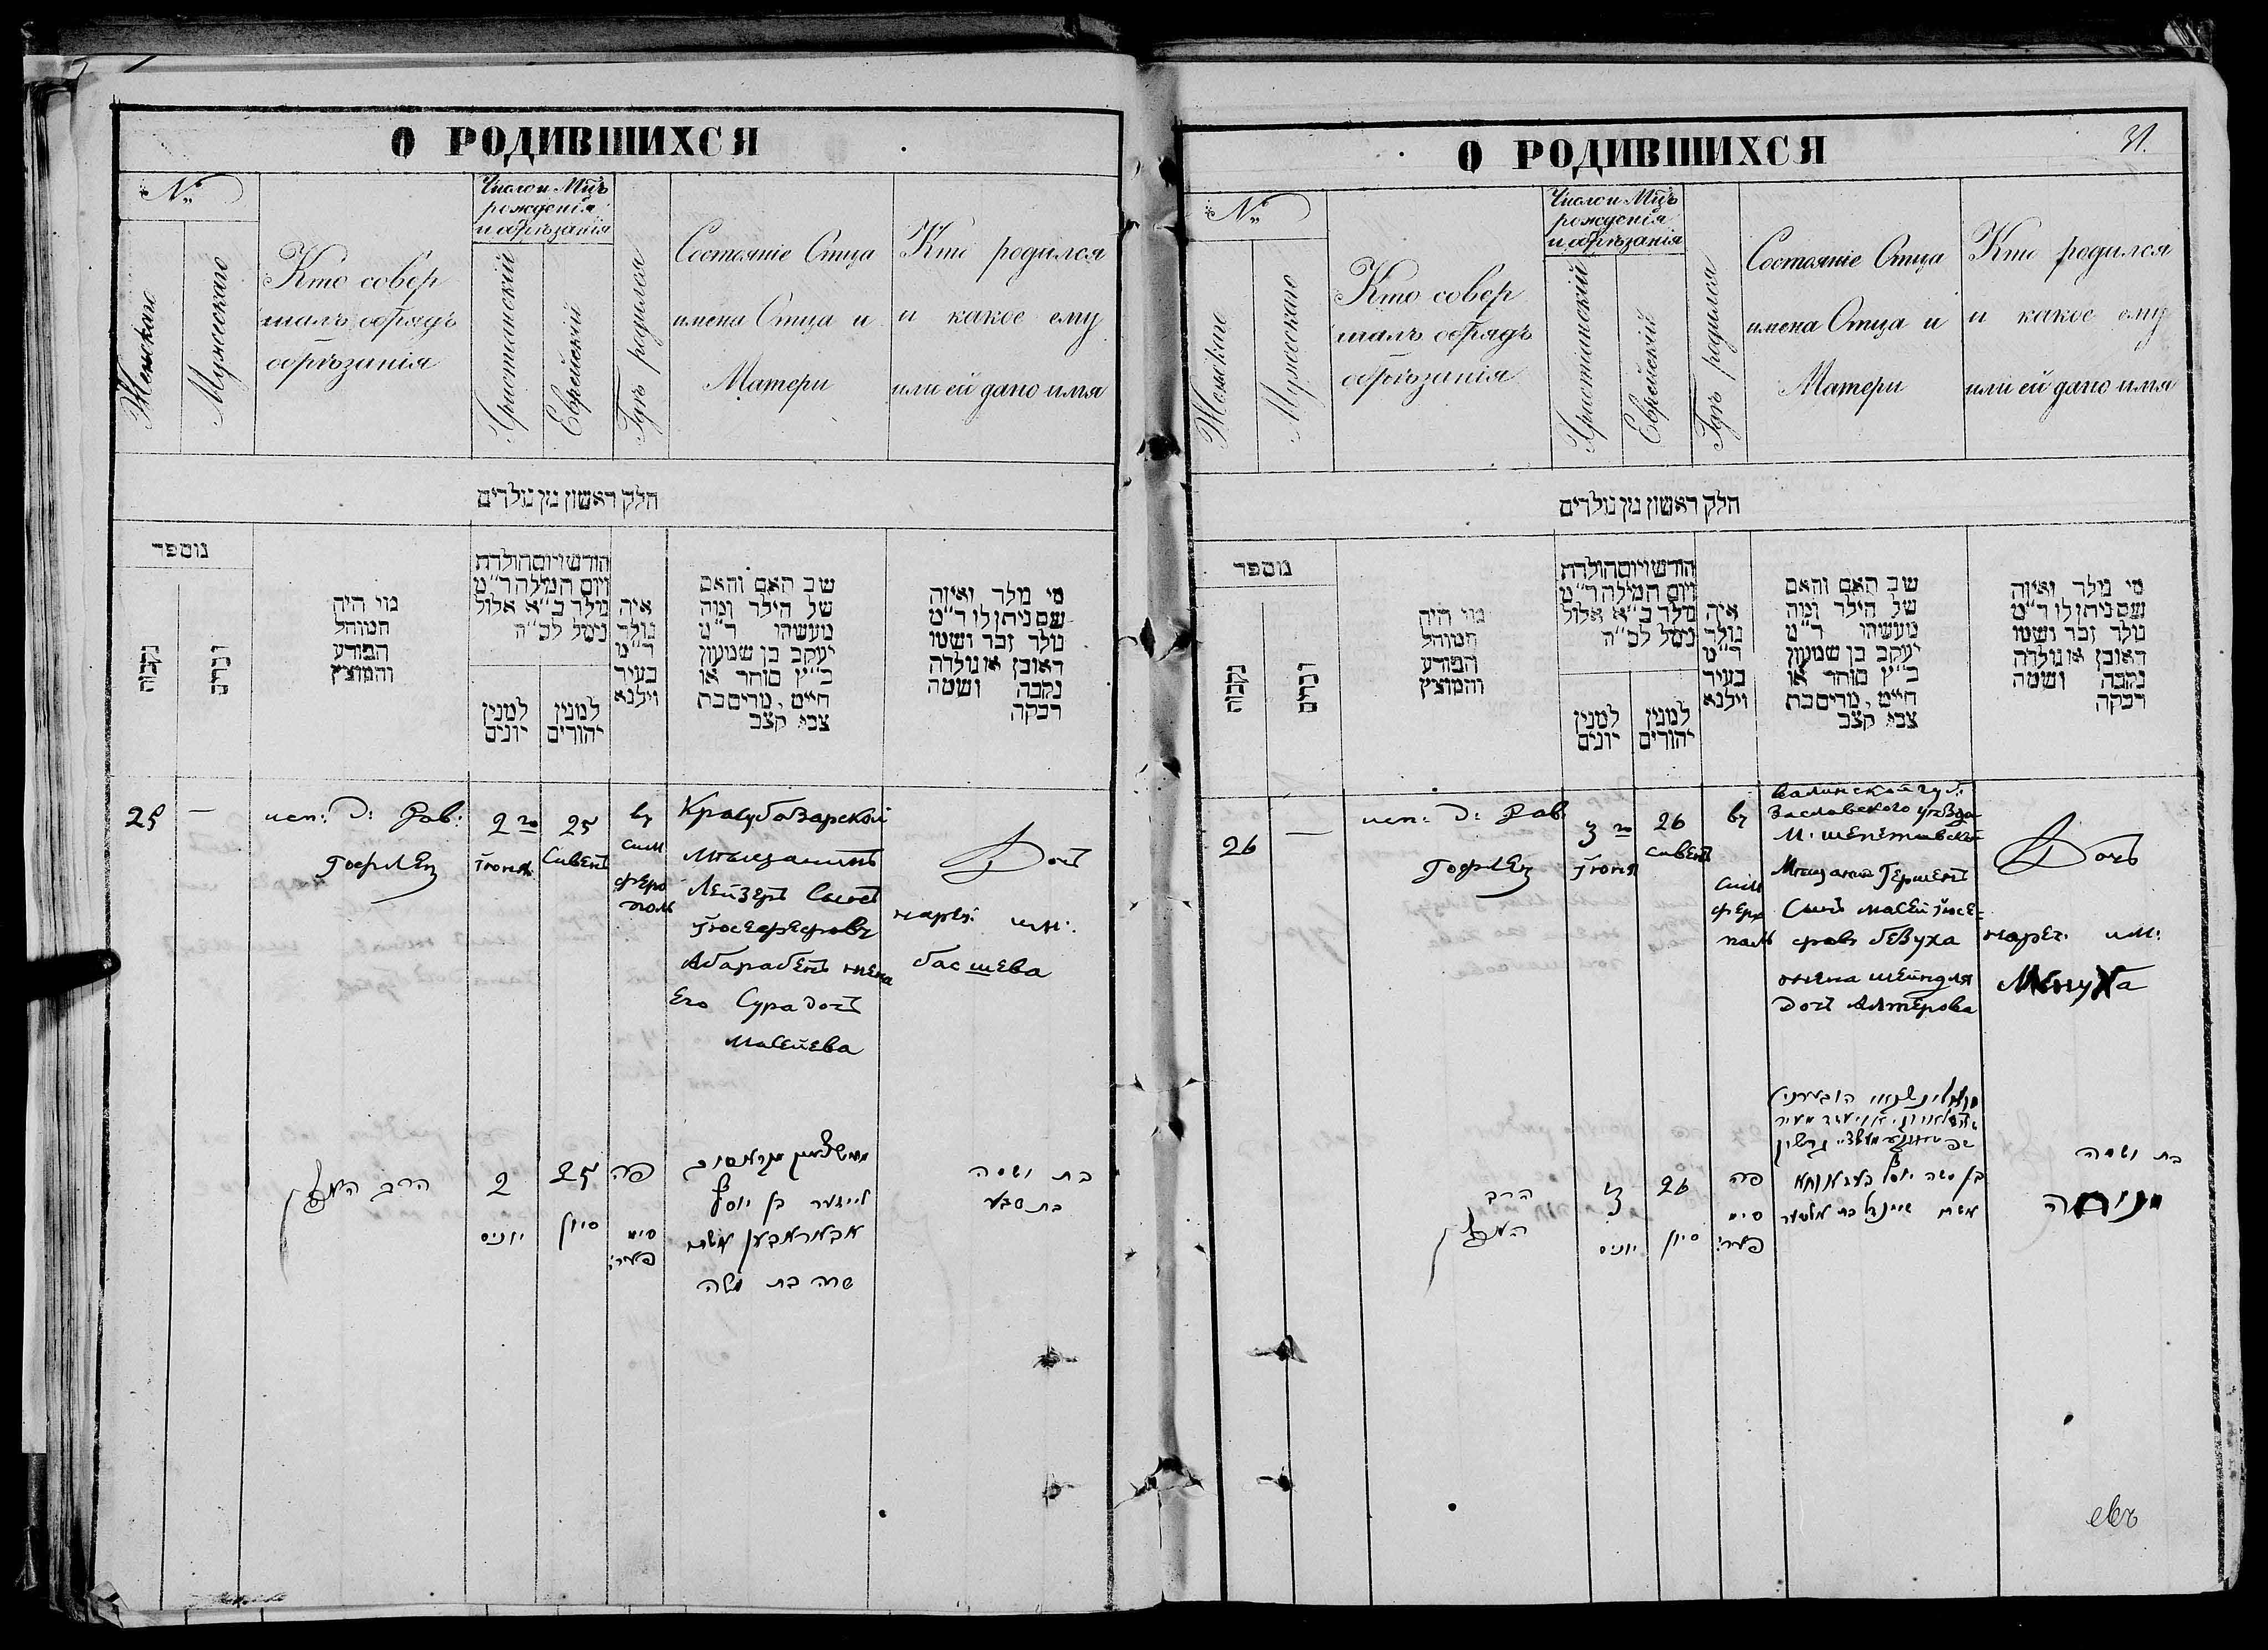 О РОДИВШИХСЯ
№
Женскаго
Мужескаго
Кто совер
шалъ обрядъ
обрѣзанія
Число и Мцъ
рожденія
и обрѣзанія
Христіанскій
Еврейскій
Гдѣ родился
Состояніе Отца
имена Отца и
Матери
Кто родился
и какое ему
или ей дано имя
חלק ראשון מן נולדים
מספר
נקבות
זכרים
מי היה
המוהל
הפורע
והמוצץ
חודש ויום הולדת
ויום המילה ר״מ
נולד כ״א אלול
נימל לכ״ה
למנין
יונים
למנין
יהודים
איה
נולד
ד״מ
בעיר
וילנא
שב האם והאם
של הילד ומה
מעשהו ד״מ
יעקב בן שמעון
כ״ץ סוחר או
חייט, מרים בת
צבי קצב
מי נולד ואיזה
שם ניתן לו ד״מ
נולד זכר ושמו
ראובן או נולדה
נקבה ושמה
רבקה
25
—
исп: д: Рав:
Гофлец
2го
Іюня
25
Сивенъ
въ
сим
феро
поль
Карасубазарской
Мѣщанинъ
Лейзеръ Сынъ
Іосефовъ
Абарабенъ жена
Его Сура дочь
Мосеева
Дочь
нареч: им:
басшева
הרב
2
יוניס
25
סיון
פה
סימ
פער:
לייזער בן יוסף
שרה בת משה
בת ושמה
בת שבע
О РОДИВШИХСЯ
31.
№
Женскаго
Мужескаго
Кто совер
шалъ обрядъ
обрѣзанія
Число и Мцъ
рожденія
и обрѣзанія
Христіанскій
Еврейскій
Гдѣ родился
Состояніе Отца
имена Отца и
Матери
Кто родился
и какое ему
или ей дано имя
חלק ראשון מן נולדים
מספר
נקבות
זכרים
מי היה
המוהל
הפורע
והמוצץ
חודש ויום הולדת
ויום המילה ר״מ
נולד כ״א אלול
נימל לכ״ה
למנין
יונים
למנין
יהודים
איה
נולד
ד״מ
בעיר
וילנא
שב האם והאם
של הילד ומה
מעשהו ד״מ
יעקב בן שמעון
כ״ץ סוחר או
חייט, מרים בת
צבי קצב
מי נולד ואיזה
שם ניתן לו ד״מ
נולד זכר ושמו
ראובן או נולדה
נקבה ושמה
רבקה
26
—
исп: д: Рав:
Гофлец
3го
Іюня
26
Сивенъ
въ
Сим
феро
поль
валинской губ:
Заславского уѣзда
М. шепетивской
Мѣщанинъ Гершенъ
Сынъ Мосей Іосе-
фовъ бевуха
жена шейндля
дочь Алтерова
Дочь
нареч: им:
Менуха
הרב
3
יוניס
26
סיון
פה
סימ
פער:
בן משה יוסף
שיינדל בת אלטער
בת ושמה
מנוחה